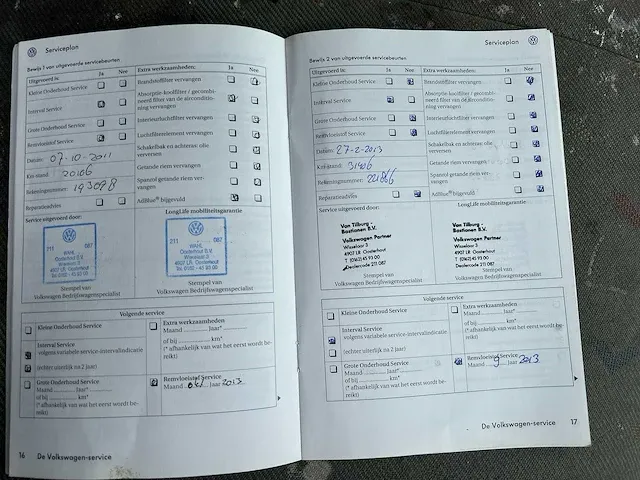 Serviceplan
Bewijs 1 van uitgevoerde servicebeurten
Uitgevoerd is: Ja Nee
Kleine Onderhoud Service
Interval Service
Grote Onderhoud Service
Remvloeistof Service
Datum: 07-10-2011
Km stand: 20106
Rekeningnummer: 193098
Reparatieadvies
Extra werkzaamheden: Ja Nee
Brandstoffilter vervangen
Absorptie-koolfilter / gecombi-
neerd filter van de airconditio-
ning vervangen
Interieurluchtfilter vervangen
Luchtfilterelement vervangen
Schakelbak en achteras: olie
verversen
Getande riem vervangen
Spanrol getande riem ver-
vangen
AdBlue® bijgevuld
Service uitgevoerd door:
LongLife mobiliteitsgarantie
211 087
WAHL
Oosterhout B.V.
Wisselaar 3
4907 LR Oosterhout
211 087
WAHL
Oosterhout B.V.
Wisselaar 3
4907 LR Oosterhout
Stempel van
Volkswagen Bedrijfswagenspecialist
Stempel van
Volkswagen Bedrijfswagenspecialist
Volgende service
Kleine Onderhoud Service
Interval Service
volgens variabele service-intervalindicatie
(echter uiterlijk na 2 jaar)
Grote Onderhoud Service
Maand ........ Jaar*
of bij ............ km*
(* afhankelijk van wat het eerst wordt be-
reikt)
Extra werkzaamheden
Maand ........ Jaar*
of bij ............ km*
(* afhankelijk van wat het eerst wordt be-
reikt)
Remvloeistof Service
Maand okt Jaar 2013
16 De Volkswagen-service
Serviceplan
Bewijs 2 van uitgevoerde servicebeurten
Uitgevoerd is: Ja Nee
Kleine Onderhoud Service
Interval Service
Grote Onderhoud Service
Remvloeistof Service
Datum: 27-2-2013
Km-stand: 31406
Rekeningnummer: 221866
Reparatieadvies
Extra werkzaamheden: Ja Nee
Brandstoffilter vervangen
Absorptie-koolfilter / gecombi-
neerd filter van de airconditio-
ning vervangen
Interieurluchtfilter vervangen
Luchtfilterelement vervangen
Schakelbak en achteras: olie
verversen
Getande riem vervangen
Spanrol getande riem ver-
vangen
AdBlue® bijgevuld
Service uitgevoerd door:
LongLife mobiliteitsgarantie
Van Tilburg -
Bastianen B.V.
Volkswagen Partner
Wisselaar 3
4907 LR Oosterhout
T (0162) 45 93 00
Dealercode 211 087
Van Tilburg -
Bastianen B.V.
Volkswagen Partner
Wisselaar 3
4907 LR Oosterhout
T (0162) 45 93 00
Dealercode 211 087
Stempel van
Volkswagen Bedrijfswagenspecialist
Stempel van
Volkswagen Bedrijfswagenspecialist
Volgende service
Kleine Onderhoud Service
Interval Service
volgens variabele service-intervalindicatie
(echter uiterlijk na 2 jaar)
Grote Onderhoud Service
Maand ........ Jaar*
of bij ............ km*
(* afhankelijk van wat het eerst wordt be-
reikt)
Extra werkzaamheden
Maand ........ Jaar*
of bij ............ km*
(* afhankelijk van wat het eerst wordt be-
reikt)
Remvloeistof Service
Maand 9 Jaar 2013
De Volkswagen-service 17